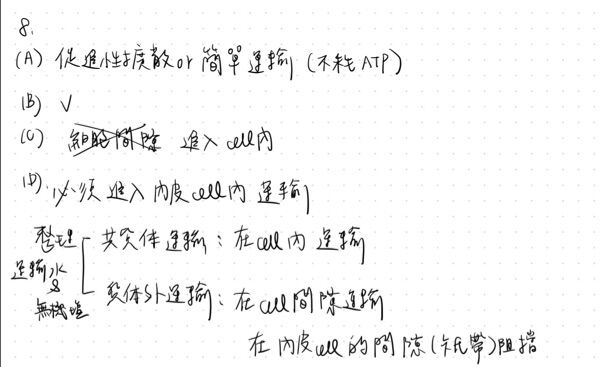 8.
(A) 促進性擴散 or 簡單運輸 (不耗ATP)
(B) V
(C) 細胞間隙 進入 cell內
(D). 必須進入內皮cell內運輸
整理
運輸水
&
無機鹽
共質體運輸：在cell內運輸
質體外運輸：在cell間隙運輸
在內皮cell的間隙(卡氏帶)阻擋